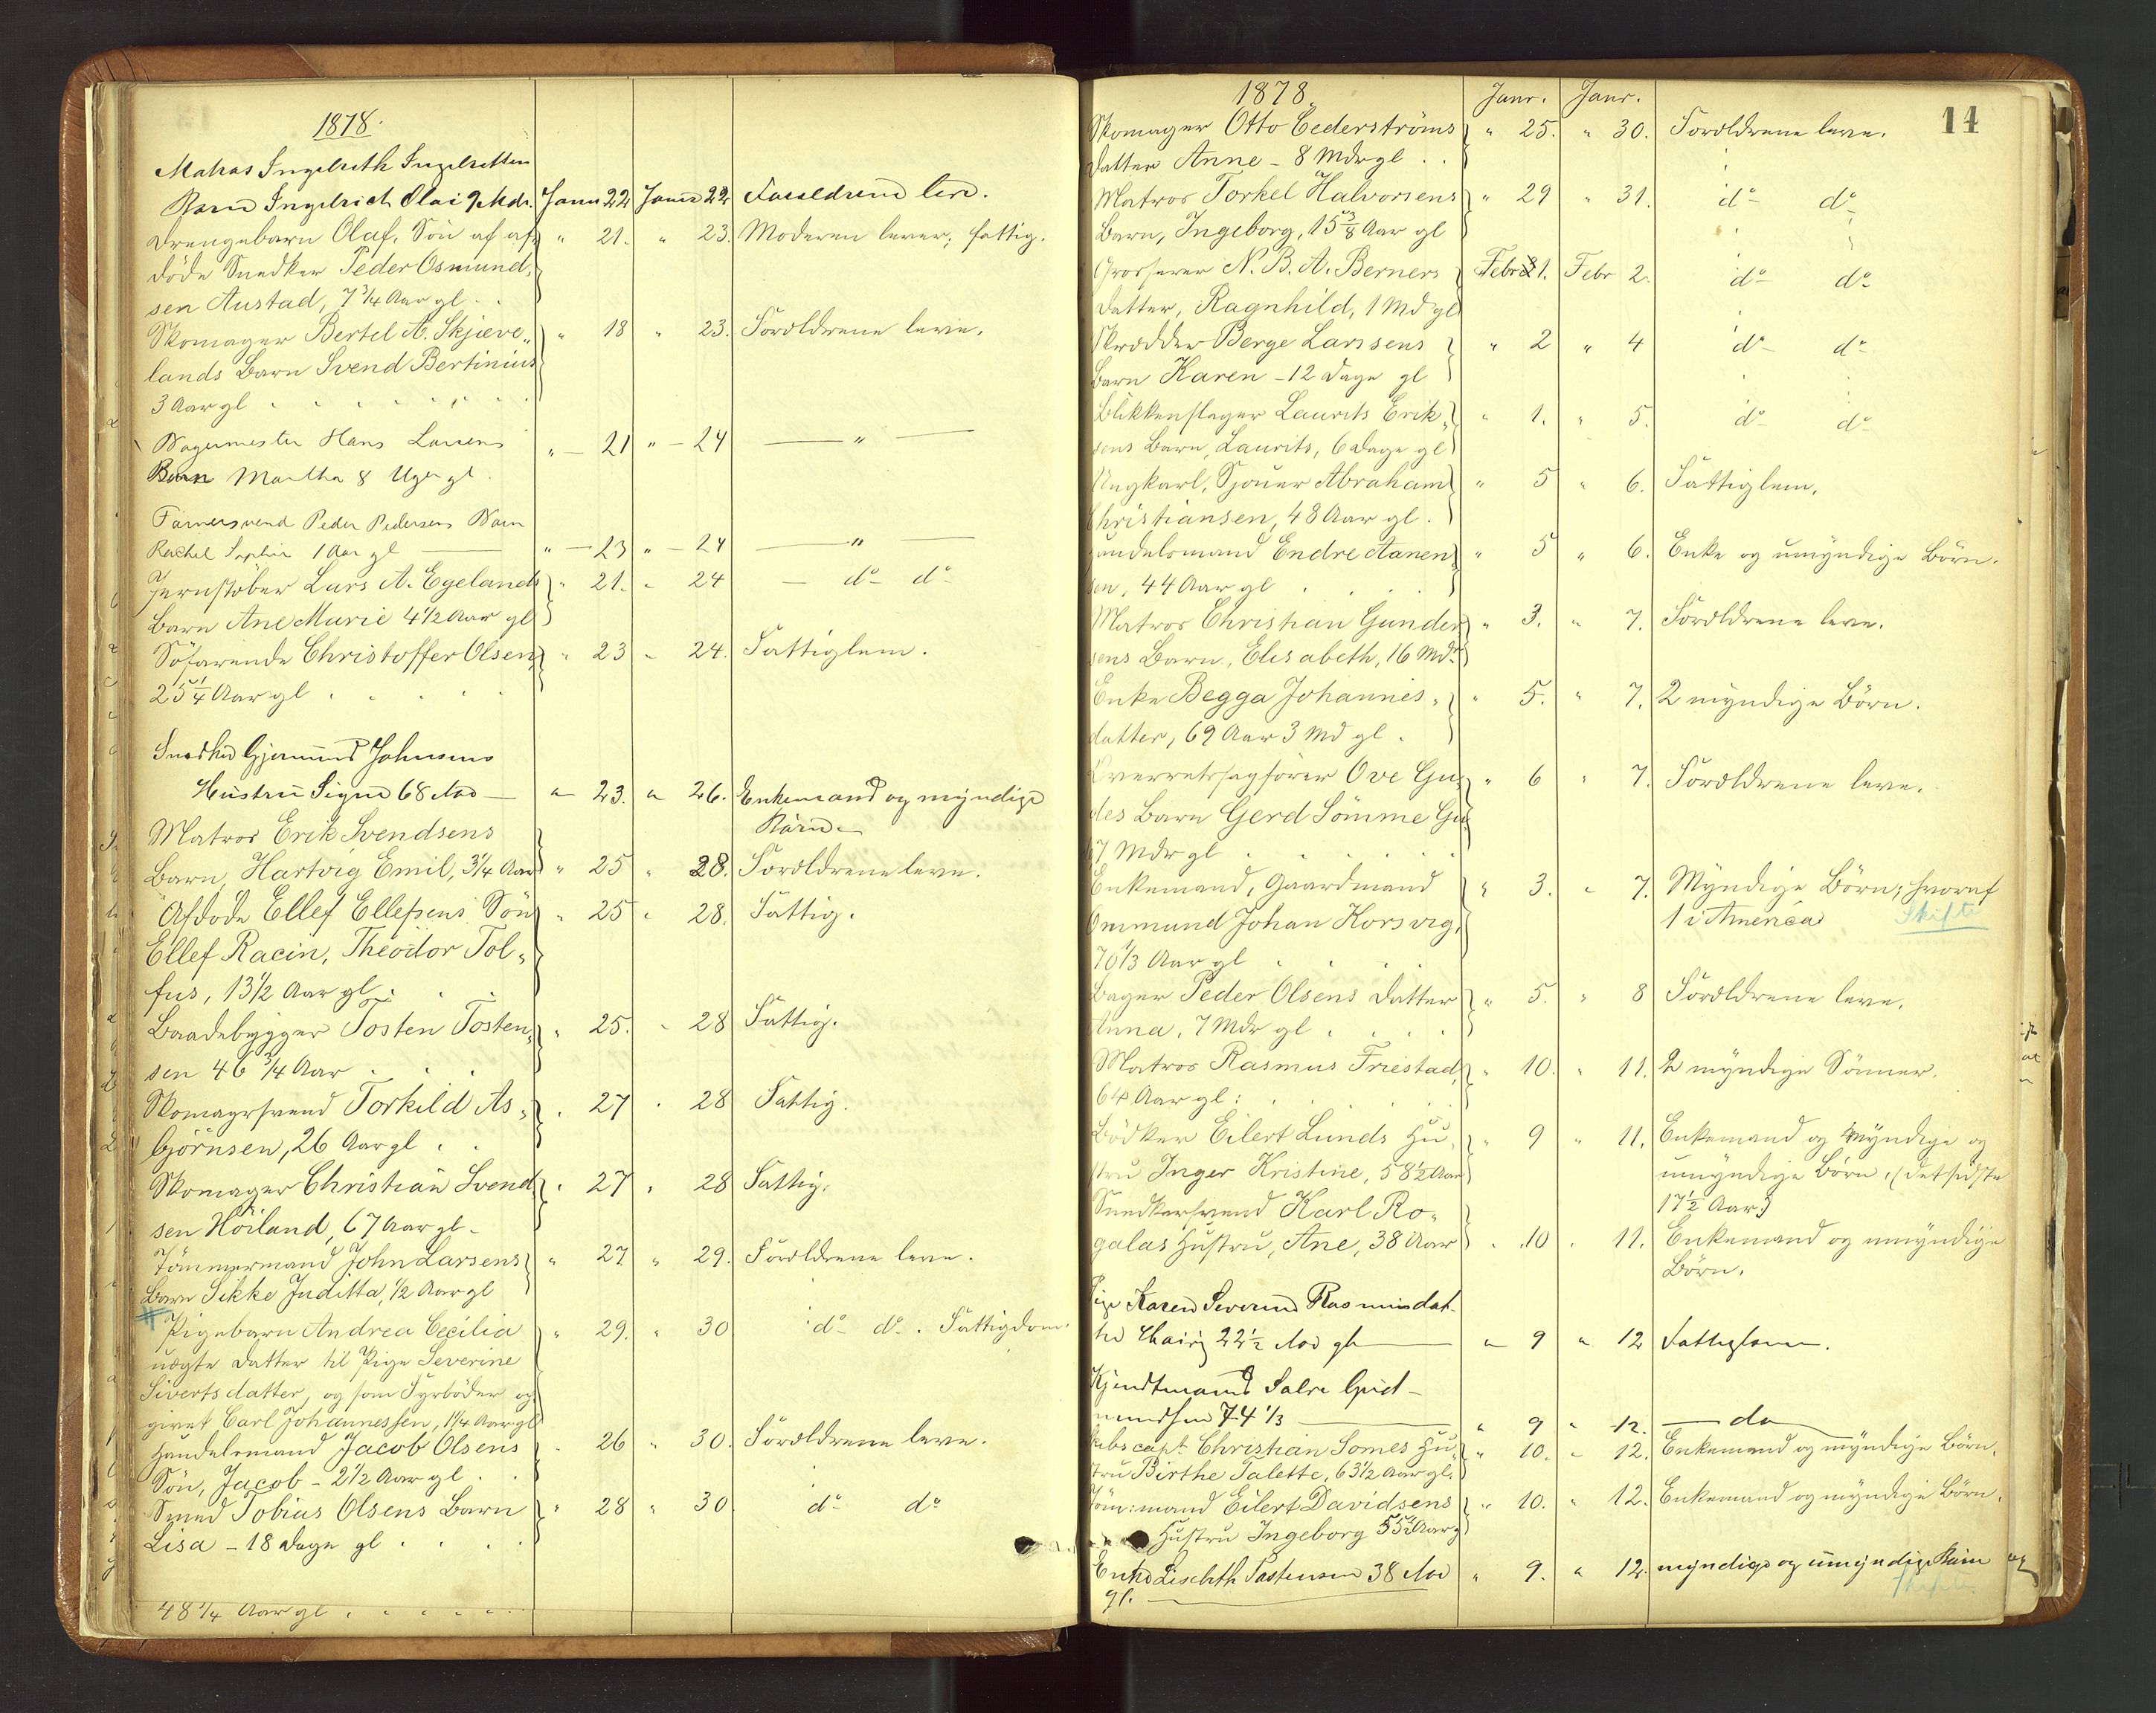 1878.
Matros Ingebreth Ingebretsen
Barn Ingebrich Olai 9 Mdr. Janu 22 Janu 22 Forældrene leve.
Drengebarn Olaf, Søn af af- " 21. " 23. Moderen lever; fattig.
døde Snedker Peder Osmund-
sen Austad, 7 3/4 Aar gl.
Skomager Bertel A. Skjæve- " 18 " 23. Forældrene leve.
lands Barn Svend Bertinius
3 Aar gl
Bagermester Hans Larsens " 21 " 24 "
Barn Martha 8 Uger gl.
Peder Pedersens Barn
Rachel Sophie 1 Aar gl " 23 " 24 "
Jernstøber Lars A. Egelands " 21. " 24 do do
Barn Ane Marie 4 1/2 Aar gl
Søfarende Christoffer Olsen, " 23 " 24. Fattiglem.
25 1/4 Aar gl
Snedker Gjermund Johnsens
Hustru Signe 68 Aar " 23. " 26. Enkemand og myndige
Børn
Matros Erik Svendsens
Barn, Hartvig Emil, 3 1/4 Aar " 25 " 28. Forældrene leve.
Afdøde Ellef Ellefsens Søn " 25 " 28. Fattig.
Ellef Racin, Theodor Tol-
fus, 13 1/2 Aar gl.
Baadebygger Tosten Tosten- " 25. " 28 Fattig.
sen 46 3/4 Aar
Skomagersvend Torkild As- " 27 " 28 Fattig.
björnsen, 26 Aar gl
Skomager Christian Svend- " 27 " 28 Fattig.
sen Höiland, 67 Aar gl
Tömmermand John Larsens " 27. " 29. Forældrene leve.
Barn Sikke Juditta, 1/2 Aar gl
# Pigebarn Andrea Cecilia " 29. " 30 do do. Fattigdom.
uægte Datter til Pige Severine
Sivertsdatter, og som Fyrbøder op-
givet Carl Johannessen, 1 1/4 Aar gl
Handelsmand Jacob Olsens " 26 " 30. Forældrene leve.
Søn, Jacob - 2 1/2 Aar gl.
Smed Tobias Olsens Barn " 28 " 30 do do
Lisa - 18 Dage gl
48 1/4 Aar gl
1878. Janr. Janr.
14
Skomager Otto Cederströms " 25. " 30. Forældrene leve.
Datter Anne - 8 Mdr gl
Matros Torkel Halvorsens " 29 " 31. do do
Barn, Ingeborg, 15 3/8 Aar gl
Grosserer N. B. A. Berners Febr 1. Febr 2. do do
Datter, Ragnhild, 1 Md gl
Skrædder Berge Larssens " 2 " 4 do do
Barn Karen - 12 Dage gl
Blikkenslager Laurits Erik- " 1. " 5. do do
sens Barn, Laurits, 6 Dage gl
Ungkarl, Sjouer Abraham " 5 " 6. Fattiglem.
Christiansen, 48 Aar gl.
Handelsmand Endre Aanen- " 5 " 6. Enke og umyndige Börn.
sen, 44 Aar gl
Matros Christian Gunder- " 3. " 7. Forældrene leve.
sens Barn, Elisabeth, 16 Mdr
Enke Begga Johannes- " 5. " 7. 2 myndige Börn.
datter, 69 Aar 3 Md gl.
Overretssagfører Ove Gu- " 6 " 7. Forældrene leve.
des Barn Gerd Sömme Gu-
7 Mdr gl
Enkemand, Gaardmand " 3. " 7. Myndige Börn; hvoraf
Ommund Johan Korsvig, 1 i America Skifte
70 1/3 Aar gl
Bager Peder Olsens Datter " 5. " 8 Forældrene leve.
Anna, 7 Mdr gl
Matros Rasmus Friestad, " 10. " 11. 2 myndige Sönner.
64 Aar gl:
Bödker Eilert Lunds Hu- " 9 " 11. Enkemand og myndige og
stru Inger Kristine, 58 1/2 Aar umyndige Börn. (det sidste
Snedkersvend Karl Ro- 17 1/2 Aar.)
galas Hustru, Ane, 38 Aar " 10 " 11. Enkemand og umyndige
Börn.
Pige Karen Severine Rasmusdat-
ter 22 1/2 Aar gl " 9 " 12 Fattiglem.
Kjendtmand Salve Gud-
mundsen 74 1/3 " 9 " 12. do
Skibscapt. Christian Somes Hu- " 10. " 12. Enkemand og myndige Börn.
stru Birthe Talette, 63 1/2 Aar gl.
Töm:mand Eilert Davidsens " 10. " 12. Enkemand og myndige Börn.
Hustru Ingeborg 55 1/2 Aar g
Enke Lisebeth Tostensen 38 Aar " 9. " 12. myndige og umyndige Børn
gl. Skifte